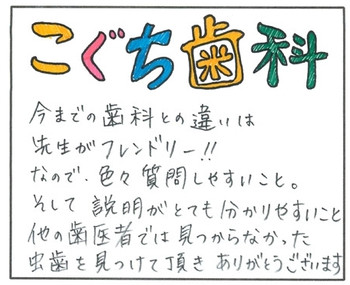 こぐち歯科
今までの歯科との違いは
先生がフレンドリー!!
なので、色々質問しやすいこと。
そして説明がとても分かりやすいこと
他の歯医者では見つからなかった
虫歯を見つけて頂きありがとうございます